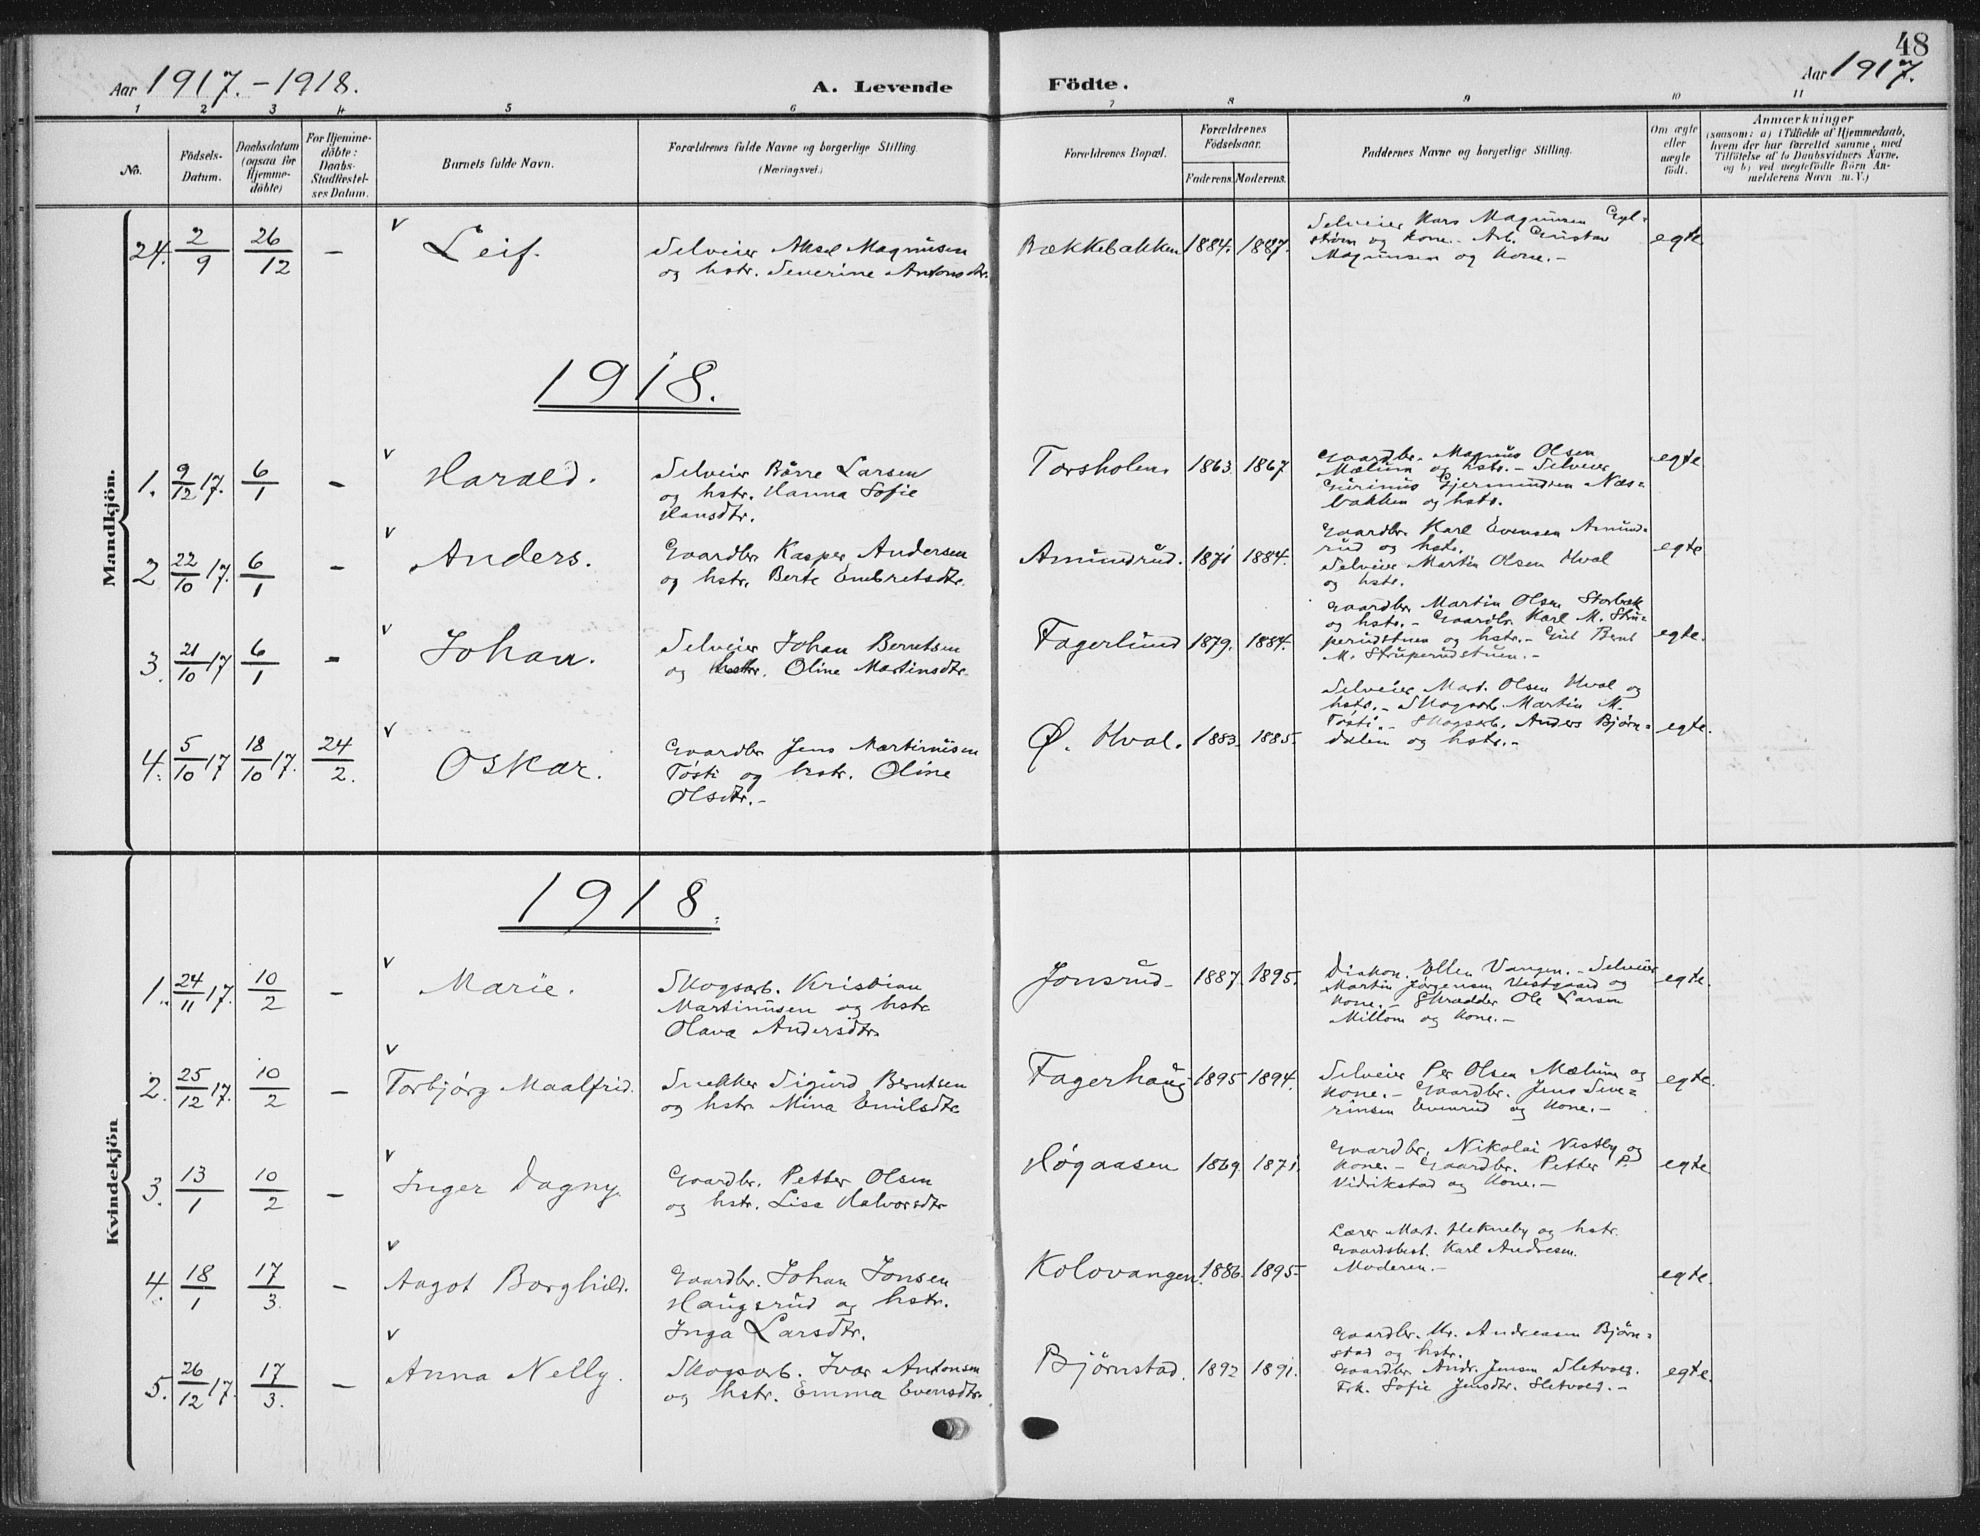 48
Aar 1917.-1918. A. Levende Födte. Aar 1917.
1 2 3 4 5 6 7 8 9 10 11
No.
Födsels-
Datum.
Daabsdatum
(ogsaa for
Hjemme-
döbte)
For Hjemme-
döbte:
Daabs-
Stadfæstel-
ses Datum.
Barnets fulde Navn.
Forældrenes fulde Navne og borgerlige Stilling.
(Næringsvei.)
Forældrenes Bopæl.
Forældrenes
Födselsaar.
Faderens. Moderens.
Faddernes Navne og borgerlige Stilling.
Om ægte
eller
uægte
födt.
Anmærkninger
(saasom: a) i Tilfælde af Hjemmedaab,
hvem der har forrettet samme, med
Tilföielse af to Daabsvidners Navne,
og b) ved uægtefödte Börn An-
melderens Navn m. V.)
Mandkjön.
24. 2/9 26/12 - v Leif.
Selveier Aksel Magnusen
og hstr. Severine Antonsdtr.
Bækkebakken 1884. 1887.
Selveier Hars Magnusen
strøm og kone. - Arb. Gustav
Magnusen og kone. -
egte
1918.
1. 9/12 17. 6/1 - v Harald.
Selveier Børre Larsen
og hstr. Hanna Sofie
Hansdtr.
Torsholen 1863 1867
Gaardbr. Magnus Olsen
Mælum og hstr. - Selveier
Gjermundsen Næs-
bakken og hstr.
egte
2 22/10 17. 6/1 - v Anders.
Gaardbr. Kasper Andersen
og hstr. Berte Embretsdtr.
Amundrud. 1871 1884.
Gaardbr. Karl Evensen Amund-
rud og hstr.
Selveier Martin Olsen Hval
og hstr.
egte
3. 21/10 17 6/1 - v Johan.
Selveier Johan Berntsen
og hstr. Oline Martinsdtr.
Fagerlund 1879. 1884.
Gaardbr. Martin Olsen Storbæk
og hstr. - Gaardbr. Karl M. Stru-
perudstuen og hstr. - Gut Bernt
M. Struperudstuen. -
egte.
4. 5/10 17 18/10 17. 24/2. v Oskar.
Gaardbr. Jens Martinusen
Tøsti og hstr. Oline
Olsdtr. -
Ø. Hval. 1883. 1885.
Selveier Mart. Olsen Hval og
hstr. - Skogsarb. Martin M.
Tøsti. - Skogsarb. Anders Bjørn-
dalen og hstr. -
egte.
Kvindekjön
1918.
1. 24/11 17. 10/2 - v Marie.
Skogsarb. Kristian
Martinusen og hstr.
Olava Andersdtr.
Jonsrud - 1887. 1895.
Diakon. Ellen Vangen. - Selveier
Martin Jørgensen Vestgaard og
kone. - Skrædder Ole Larsen
Millom og kone. -
egte.
2. 25/12 17. 10/2 - v Torbjørg Maalfrid.
Snekker Sigurd Berntsen
og hstr. Mina Emilsdtr.
Fagerhaug 1895 1894.
Selveier Per Olsen Mælum og
kone. - Gaardbr. Jens Seve-
rinsen Evenrud og kone. -
egte.
3. 13/1 10/2 - v Inger Dagny.
Gaardbr. Petter Olsen
og hstr. Lise Halvorsdtr
Høgaasen 1869. 1871.
Gaardbr. Nikolai Vestby og
kone. - Gaardbr. Petter P.
Vidrikstad og kone. -
egte
4. 18/1 17/3. - v Aagot Borghild.
Gaardbr. Johan Jonsen
Haugsrud og hstr.
Inga Larsdtr.
Kolovangen. 1886. 1895.
Lærer Mart. Hekneby og hstr.
Gaardsbest. Karl Andresen.
Moderen. -
egte.
5. 26/12 17. 17/3. - v Anna Nelly.
Skogsarb. Ivar Antonsen
og hstr. Emma Evensdtr.
Bjørnstad. 1892 1891.
Gaardbr. Kr. Andreasen Bjørn-
stad og hstr.
Gaardbr. Andr. Jensen Sletvold.
Frk. Sofie Jensdtr. Sletvold. -
egte.